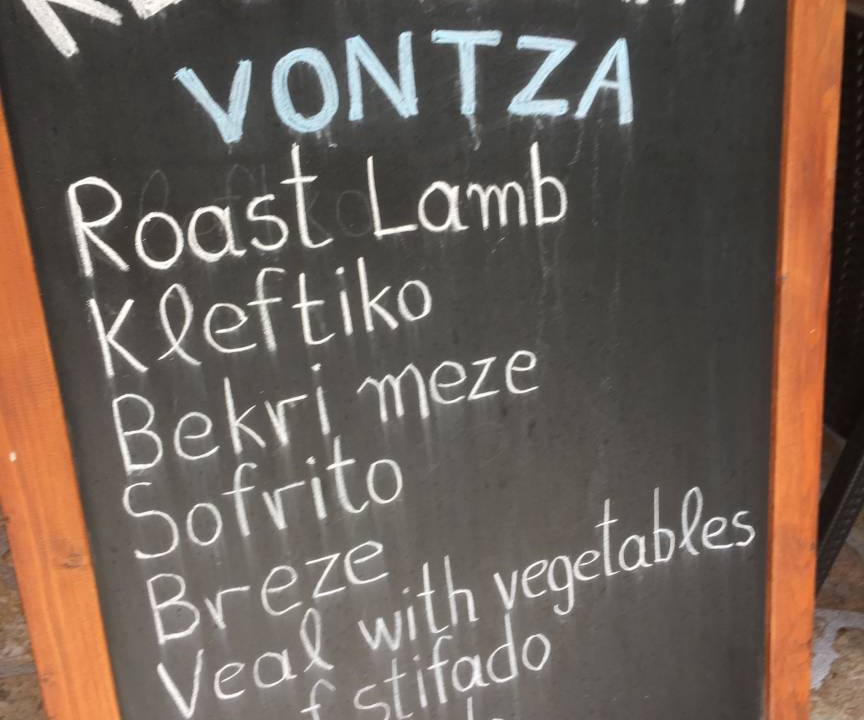 VONTZA
Roast Lamb
Kleftiko
Bekri meze
Sofrito
Breze
Veal with vegetables
stifado